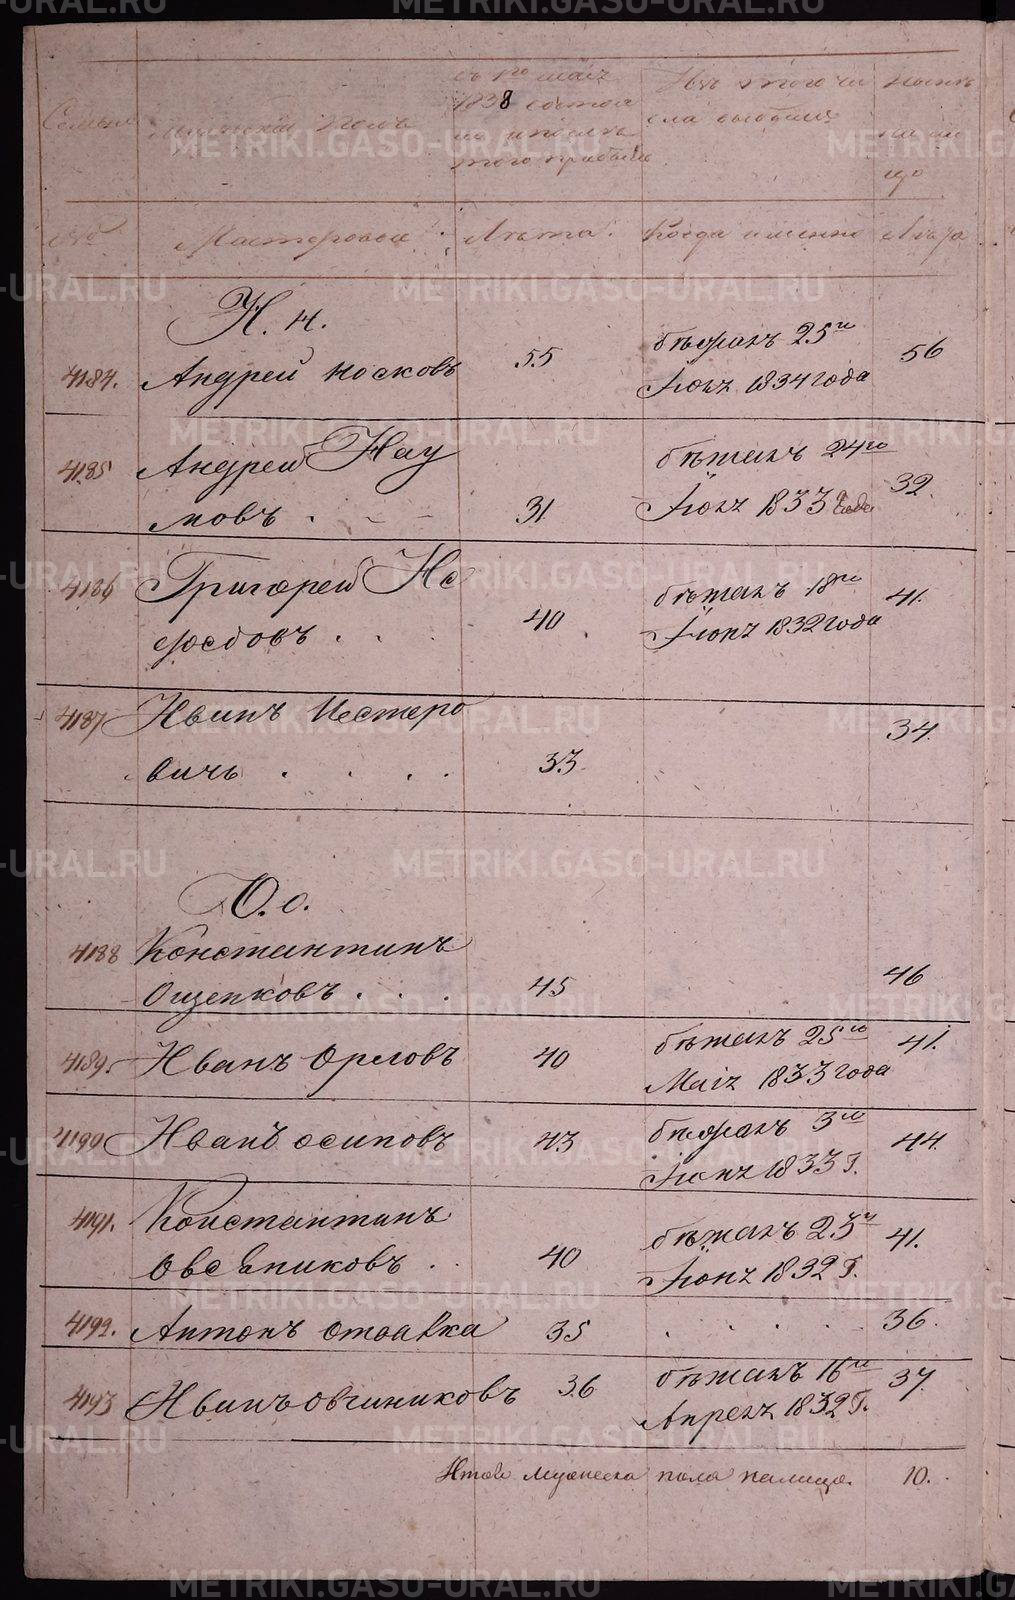 Семьи
Мужеский полъ
съ 1го маiя
1838 состоя
того прибыло
Изъ того чи
сла выбыли
нынѣ
на ли
цо
№
Мастеровые
Лѣта.
Когда именно
Лѣта
Н. н.
4184. Андрей носковъ 55 бѣжалъ 25го Iюля 1834 года 56
4185 Андрей Нау
мовъ . 31 бѣжалъ 24го Iюля 1833 года 32.
4186 Григорей Не
федовъ . . 40 бѣжалъ 18го Iюня 1832 года 41.
4187 Иванъ Нестеро
вичь . . . . 33 34.
О. о.
4188 Константинъ
Ощепковъ . . . 45 46
4189. Иванъ Орловъ 40 бѣжалъ 25го Маiя 1833 года 41.
4190 Иванъ осиповъ 43 бѣжалъ 3го Iюня 1833 г. 44.
4191. Константинъ
Овсяниковъ . . 40 бѣжалъ 25го Iюня 1832 г. 41.
4192. Антонъ 35 . . . . . 36.
4193 Иванъ овчиниковъ 36 бѣжалъ 16го Апреля 1832 г. 37.
Итого мужеска пола налицо. 10.
METRIKI.GASO-URAL.RU